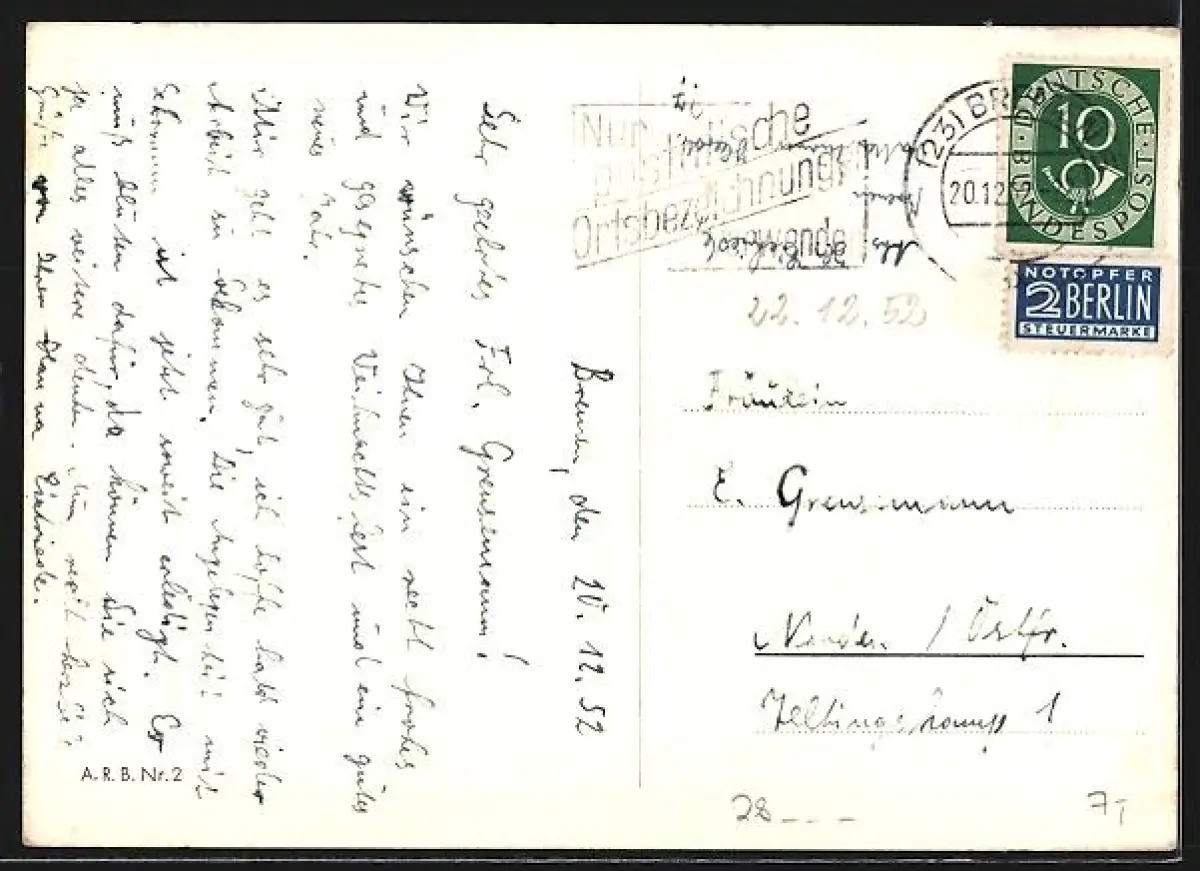 Bremen, den 20.12.52
Sehr geehrtes Frl. Grensemann!
Wir wünschen Ihnen ein recht frohes
und gesegnetes Weihnachtsfest und ein gutes
neues Jahr.
Mir geht es sehr gut, ich hoffe bald wieder
Arbeit zu bekommen. Die Angelegenheit mit
ist jetzt soweit erledigt. Er
muß dafür, da können Sie sich
ja alles weitere denken. Nun recht herzl.
Grüße von Ihrer Hanna
A.R.B. Nr. 2
Nur
postalische
Ortsbezeichnung
(23) BREMEN
20.12.52
DEUTSCHE BUNDESPOST
10
NOTOPFER
2 BERLIN
STEUERMARKE
Abs.
Bremen
22.12.52
Fräulein
E. Grensemann
Norden / Ostfr.
1
28
7T